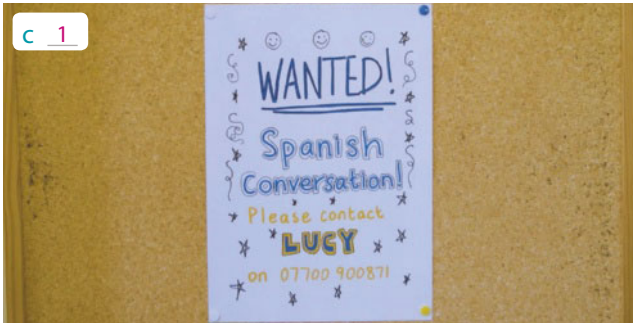 c 1
WANTED!
Spanish
Conversation!
Please contact
LUCY
on 07700 900871